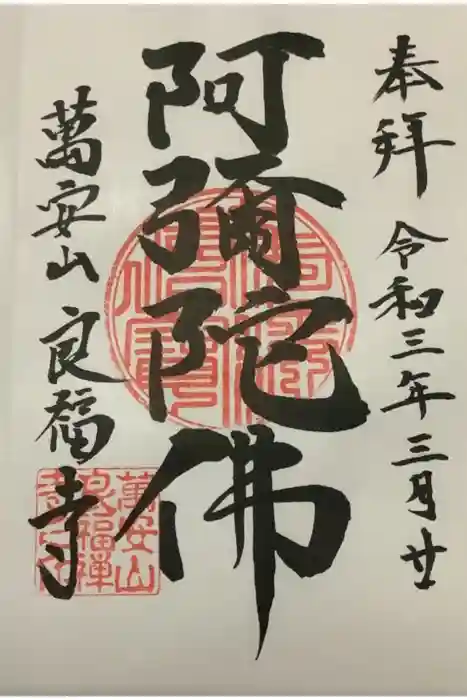 奉拜 令和三年三月廿
阿彌陀佛
萬安山 良福寺
萬安山
良福禅
寺之印